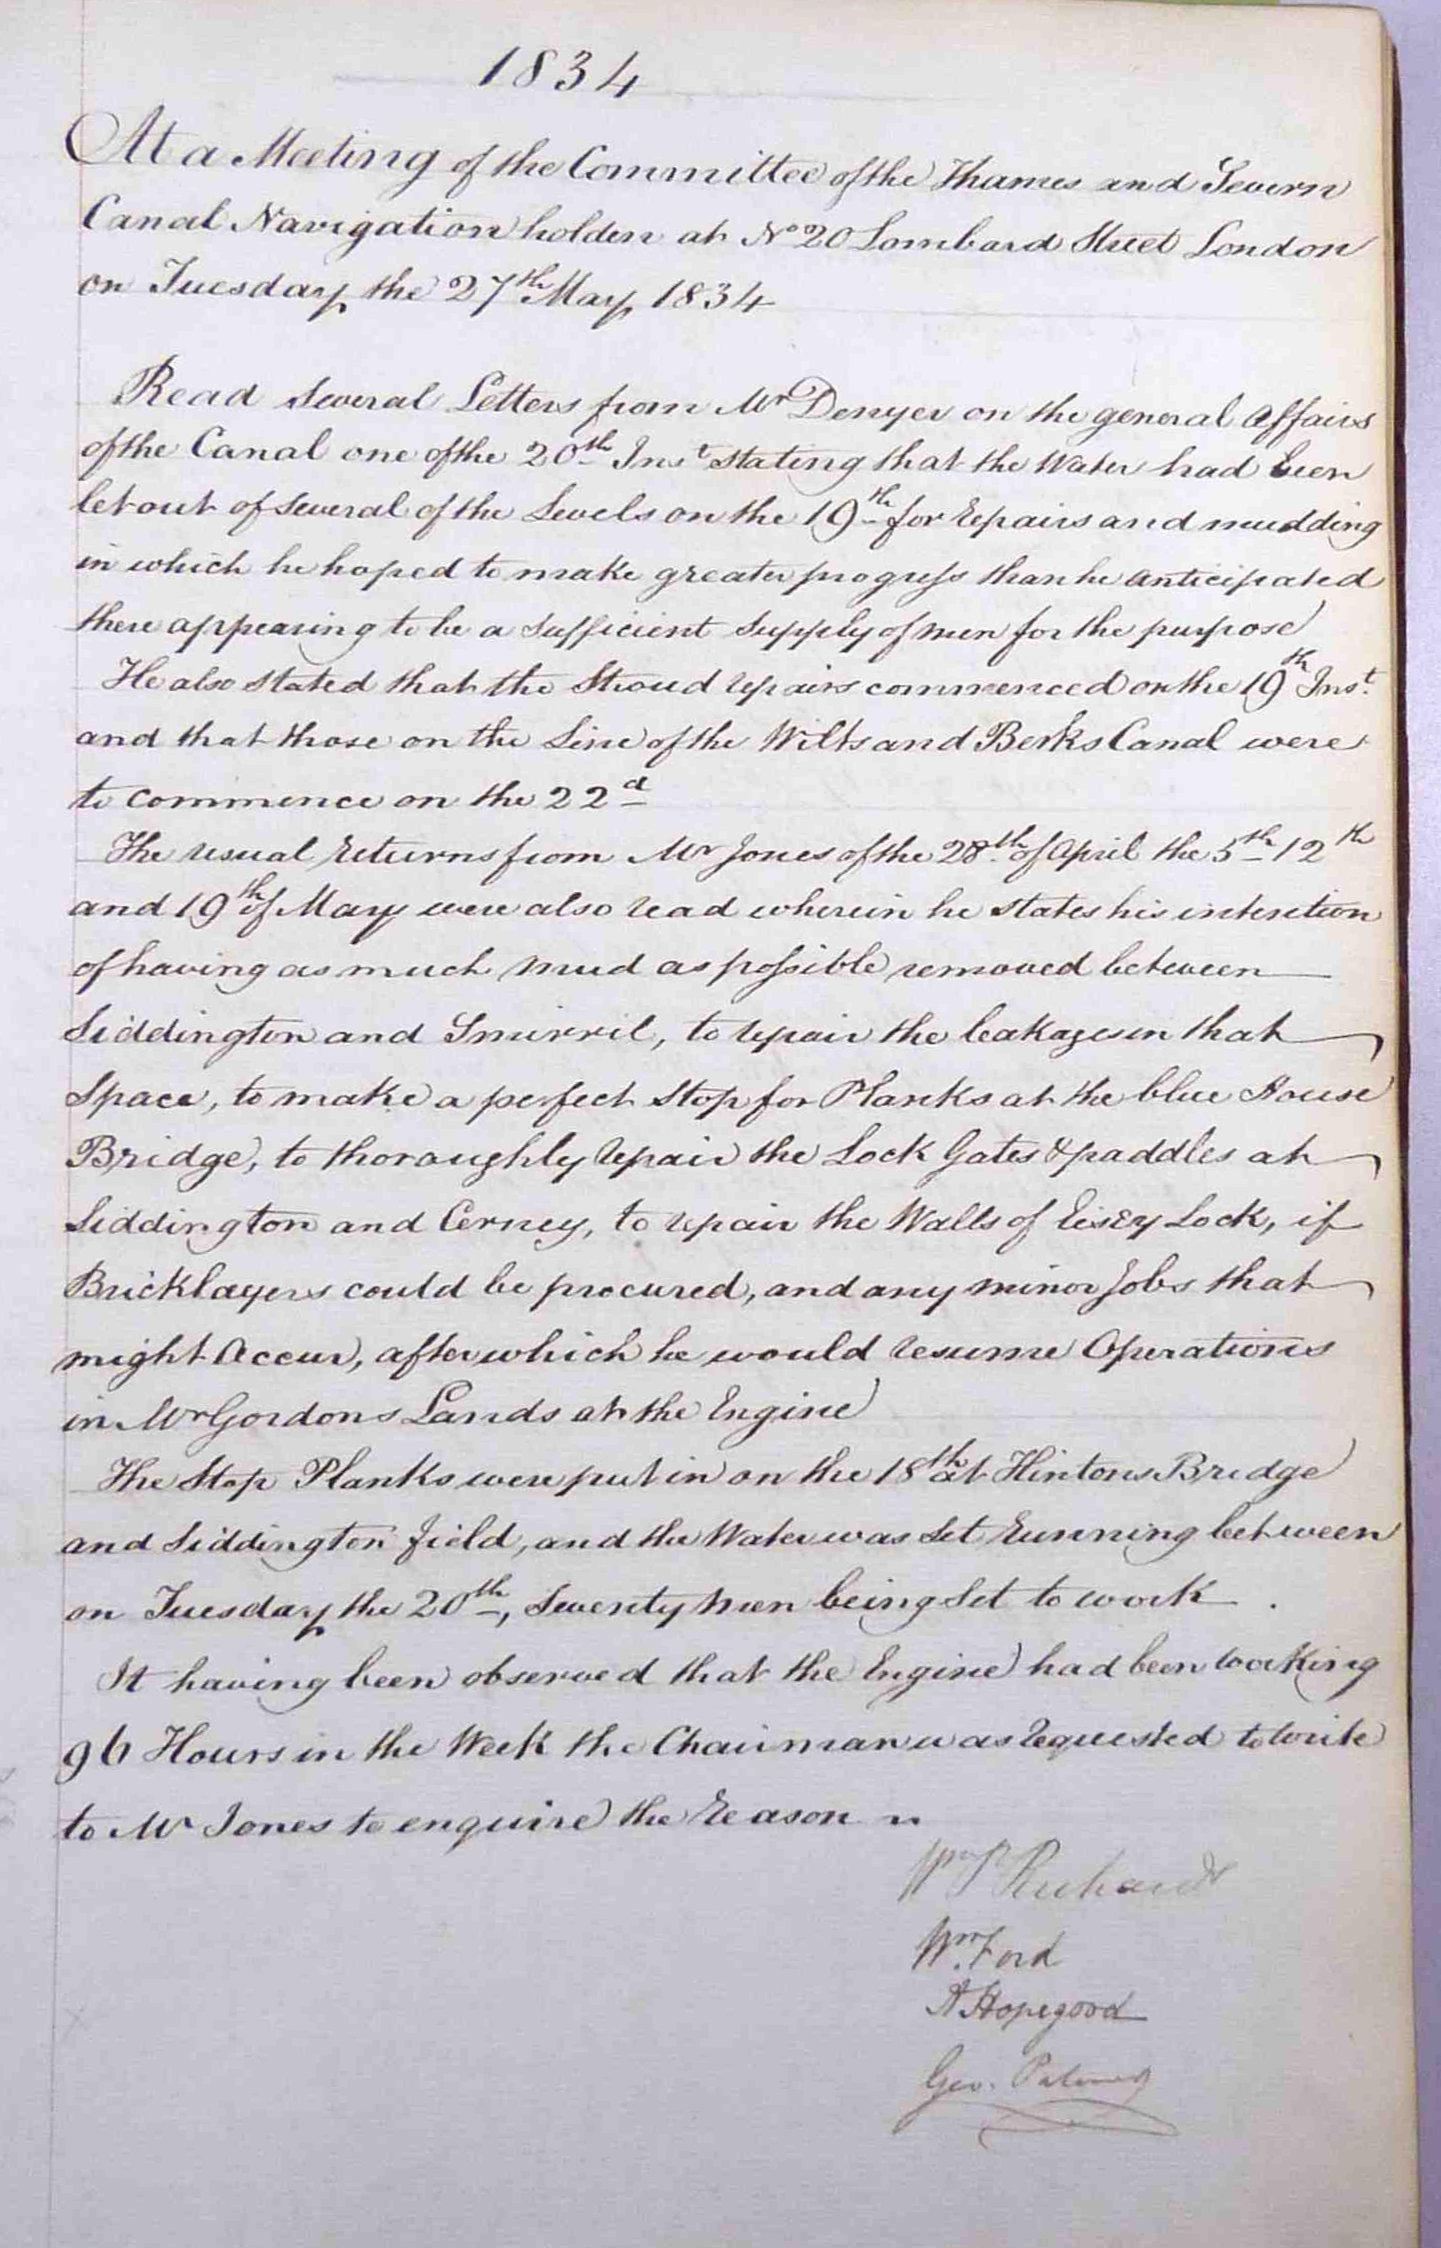 1834
At a Meeting of the Committee of the Thames and Severn
Canal Navigation holden at No 20 Lombard Street London
on Tuesday the 27th May 1834
Read several Letters from Mr Denyer on the general Affairs
of the Canal one of the 20th Inst stating that the Water had been
let out of several of the Levels on the 19th for repairs and mudding
in which he hoped to make greater progress than he anticipated
there appearing to be a sufficient supply of men for the purpose
He also stated that the Stroud repairs commenced on the 19th Inst.
and that those on the Line of the Wilts and Berks Canal were
to commence on the 22d
The usual returns from Mr Jones of the 28th of April the 5th 12th
and 19th of May were also read wherein he states his intention
of having as much mud as possible removed between
Siddington and Smirril, to repair the leakages in that
Space, to make a perfect Stop for Planks at the blue House
Bridge, to thoroughly repair the Lock Gates & paddles at
Siddington and Cerney, to repair the Walls of Eisey Lock, if
Bricklayers could be procured, and any minor Jobs that
might Occur, after which he would resume Operations
in Mr Gordons Lands at the Engine
The Stop Planks were put in on the 18th at Hintons Bridge
and Siddington field, and the Water was set running between
on Tuesday the 20th, Seventy men being set to work.
It having been observed that the Engine had been working
96 Hours in the Week the Chairman was requested to write
to Mr Jones to enquire the reason
Richards
Wm. Ford
A Hopegood
Geo. Palmer